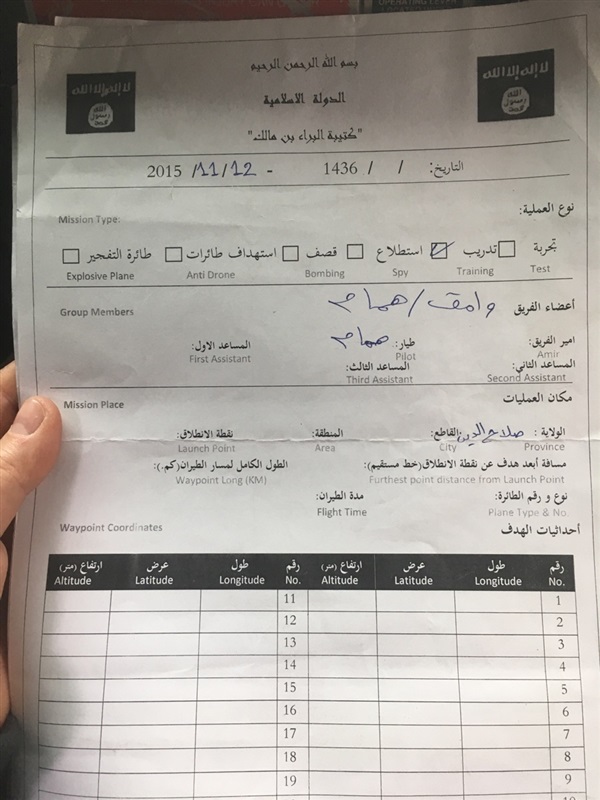 OPERATING LEVER
لا إله إلا الله
الله
رسول
محمد
بسم الله الرحمن الرحيم
الدولة الاسلامية
"كتيبة البراء بن مالك"
لا إله إلا الله
الله
رسول
محمد
التاريخ: / / 1436 - 2015 /11/12
نوع العملية:
Mission Type:
تجربة تدريب استطلاع قصف استهداف طائرات طائرة التفجير
Test Training Spy Bombing Anti Drone Explosive Plane
أعضاء الفريق وامق/همام
Group Members
امير الفريق: طيار: همام المساعد الاول:
Amir Pilot First Assistant
المساعد الثاني: المساعد الثالث:
Second Assistant Third Assistant
مكان العمليات
Mission Place
الولاية : صلاح الدين القاطع: المنطقة: نقطة الانطلاق:
Province City Area Launch Point
مسافة أبعد هدف عن نقطة الانطلاق(خط مستقيم): الطول الكامل لمسار الطيران(كم.):
Furthest point distance from Launch Point Waypoint Long (KM)
نوع و رقم الطائرة: مدة الطيران:
Plane Type & No. Flight Time
أحداثيات الهدف
Waypoint Coordinates
رقم طول عرض ارتفاع (متر) رقم طول عرض ارتفاع (متر)
No. Longitude Latitude Altitude No. Longitude Latitude Altitude
1 11
2 12
3 13
4 14
5 15
6 16
7 17
8 18
9 19
10